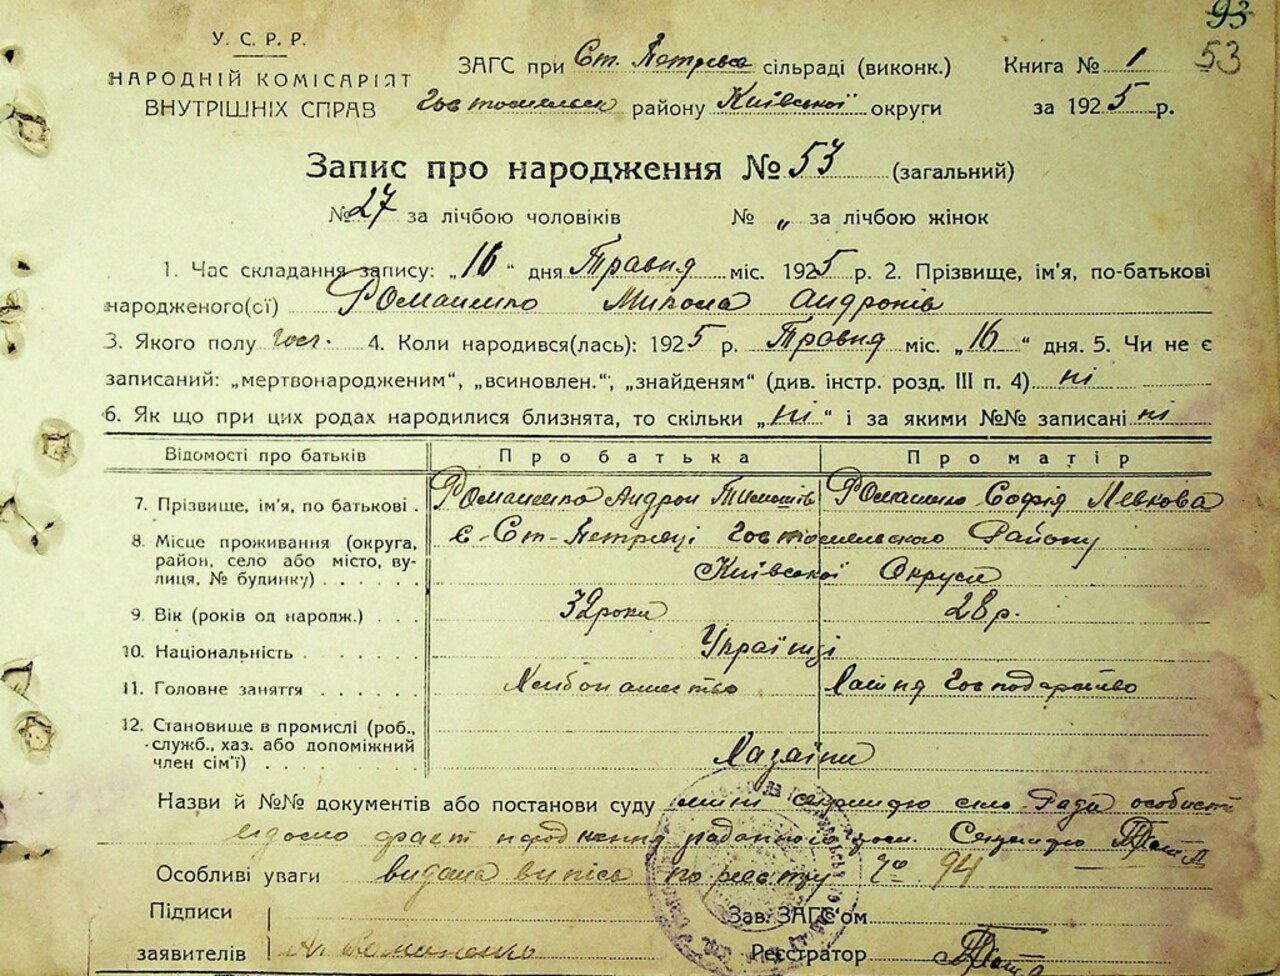 93
53
У. С. Р. Р.
НАРОДНІЙ КОМІСАРІЯТ
ВНУТРІШНІХ СПРАВ
ЗАГС при Ст. Петрівс сільраді (виконк.)
Гостомельськ району Київської округи
Книга № 1
за 1925 р.
Запис про народження № 53 (загальний)
№ 27 за лічбою чоловіків № „ за лічбою жінок
1. Час складання запису: „16“ дня Травня міс. 1925 р. 2. Прізвище, ім'я, по-батькові
народженого(сі) Романенко Микола Андронів
3. Якого полу чол. 4. Коли народився(лась): 1925 р. Травня міс. „16“ дня. 5. Чи не є
записаний: „мертвонародженим“, „всиновлен.“, „знайденям“ (див. інстр. розд. III п. 4) ні
6. Як що при цих родах народилися близнята, то скільки „ні“ і за якими №№ записані ні
Відомості про батьків Про батька Про матір
7. Прізвище, ім'я, по батькові . Романенко Андрон Тимошів Романенко Софія Левкова
8. Місце проживання (округа, район, село або місто, вулиця, № будинку) . . . . . . с. Ст-Петрівці Гостомельського Району
Київської Округи
9. Вік (років од народж.) . . . 32 роки 28 р.
10. Національність . . . . . . . Українці
11. Головне заняття . . . . . . Хлібопашество Хатня Господарство
12. Становище в промислі (роб., служб., хаз. або допоміжний член сім'ї) . . Хазяїни
Назви й №№ документів або постанови суду мині секретарю сіль-Ради особисто
відомо факт народження Секретарю
Особливі уваги видана випісь по реєстру № 94
Підписи
заявителів Ан Романенко
Зав. ЗАГС'ом
Реєстратор